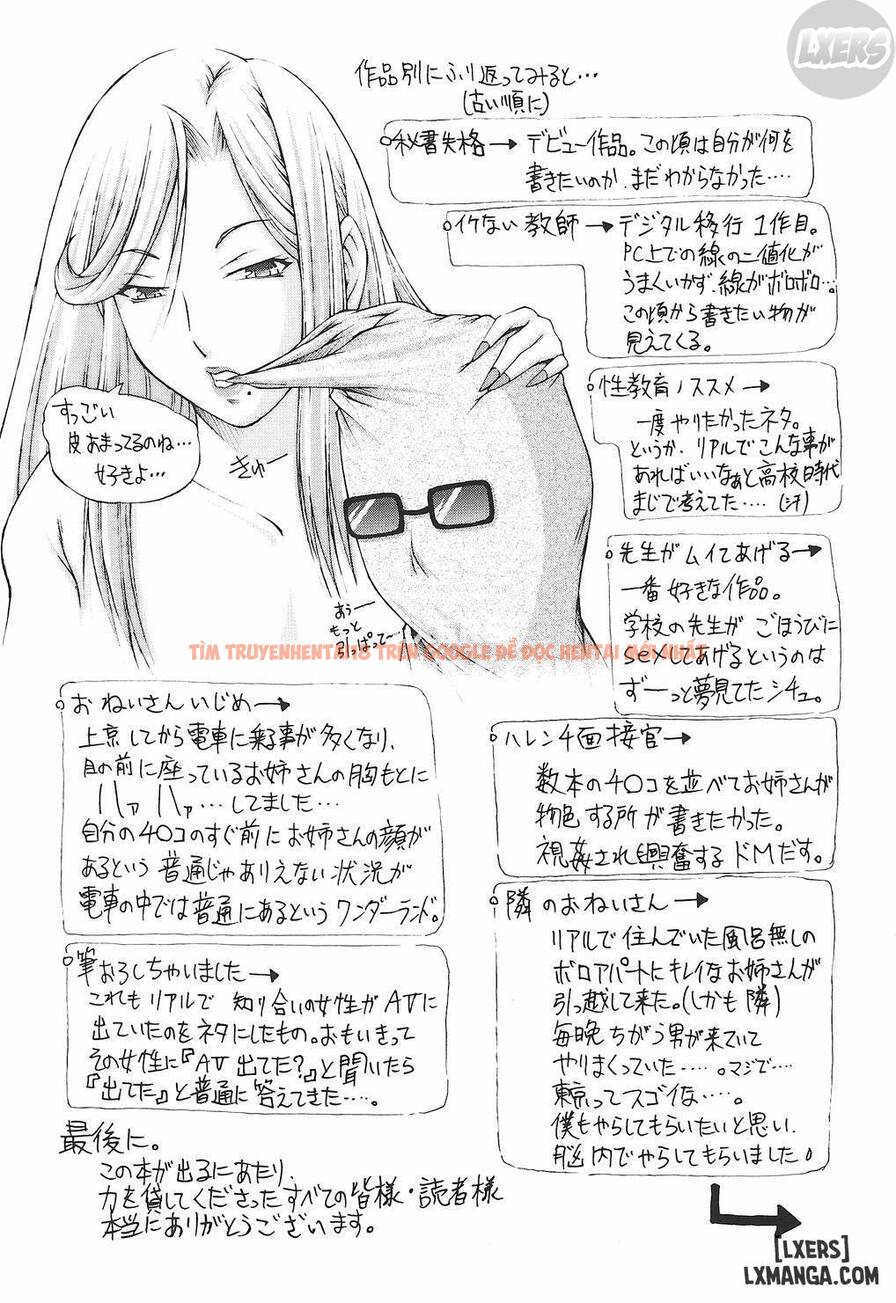 LXERS
作品別にふり返ってみると…
(古い順に)
秘書失格→デビュー作品。この頃は自分が何を
書きたいのか、まだわからなかった‥‥
イケない教師→デジタル移行1作目。
PC上での線の二値化が
うまくいかず、線がボロボロ…。
この頃から書きたい物が
見えてくる。
性教育ノススメ→
一度やりたかったネタ。
というか、リアルでこんな事が
あればいいなぁと高校時代
まじで考えてた‥‥(汗)
先生がムイてあげる→
一番好きな作品。
学校の先生がごほうびに
sexしてあげるというのは
ずーっと夢見てたシチュ。
すっごい
皮あまってるのね…
好きよ…
きゅー
あぅー
もっと
引っぱって〜
TÌM TRUYENHENTAI18 TRÊN GOOGLE ĐỂ ĐỌC HENTAI MỚI NHẤT
おねいさんいじめ→
上京してから電車に乗る事が多くなり、
目の前に座っているお姉さんの胸もとに
ハァハァ…してました…
自分のチ○コのすぐ前にお姉さんの顔が
あるという普通じゃありえない状況が
電車の中では普通にあるというワンダーランド。
ハレンチ面接官→
数本のチ○コを並べてお姉さんが
物色する所が書きたかった。
視姦され興奮するドMだす。
筆おろしちゃいました→
これもリアルで知り合いの女性がAVに
出ていたのをネタにしたもの。おもいきって
その女性に『AV出てた?』と聞いたら
『出てた』と普通に答えてきた‥‥。
隣のおねいさん→
リアルで住んでいた風呂無しの
ボロアパートにキレイなお姉さんが
引っ越して来た。(しかも隣)
毎晩ちがう男が来ていて
やりまくっていた‥‥。マジで…
東京ってスゴイな‥‥。
僕もやらしてもらいたいと思い、
脳内でやらしてもらいました。
最後に。
この本が出るにあたり、
力を貸してくださったすべての皆様・読者様
本当にありがとうございます。
[LXERS]
LXMANGA.COM